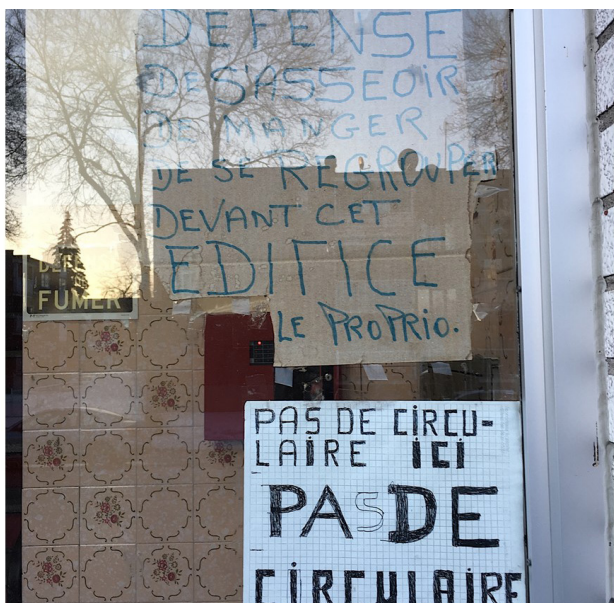 DEFENSE
DE S'ASSEOIR
DE MANGER
DE SE REGROUPER
DEVANT CET
EDIFICE
LE PROPRIO.
FUMER
PAS DE CIRCU-
LAIRE ICI
PAS DE
CIRCULAIRE